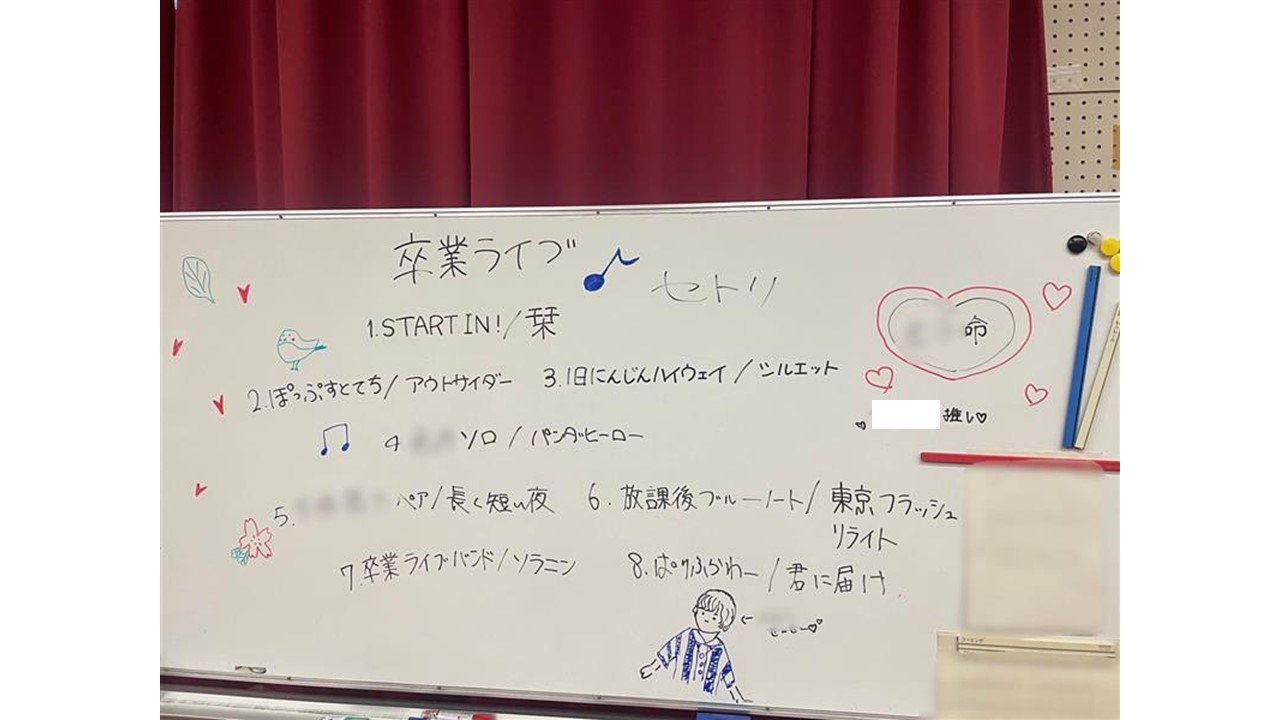 卒業ライブ
セトリ
1.START IN!/栞
2.ぽっぷすとてち/アウトサイダー 3.旧にんじんハイウェイ/シルエット
命
推し♡
4 ソロ/パンダヒーロー
5. ペア/長く短い夜 6.放課後ブルーノート/東京フラッシュ
リライト
7.卒業ライブバンド/ソラニン 8.ぱりふらわー/君に届け.